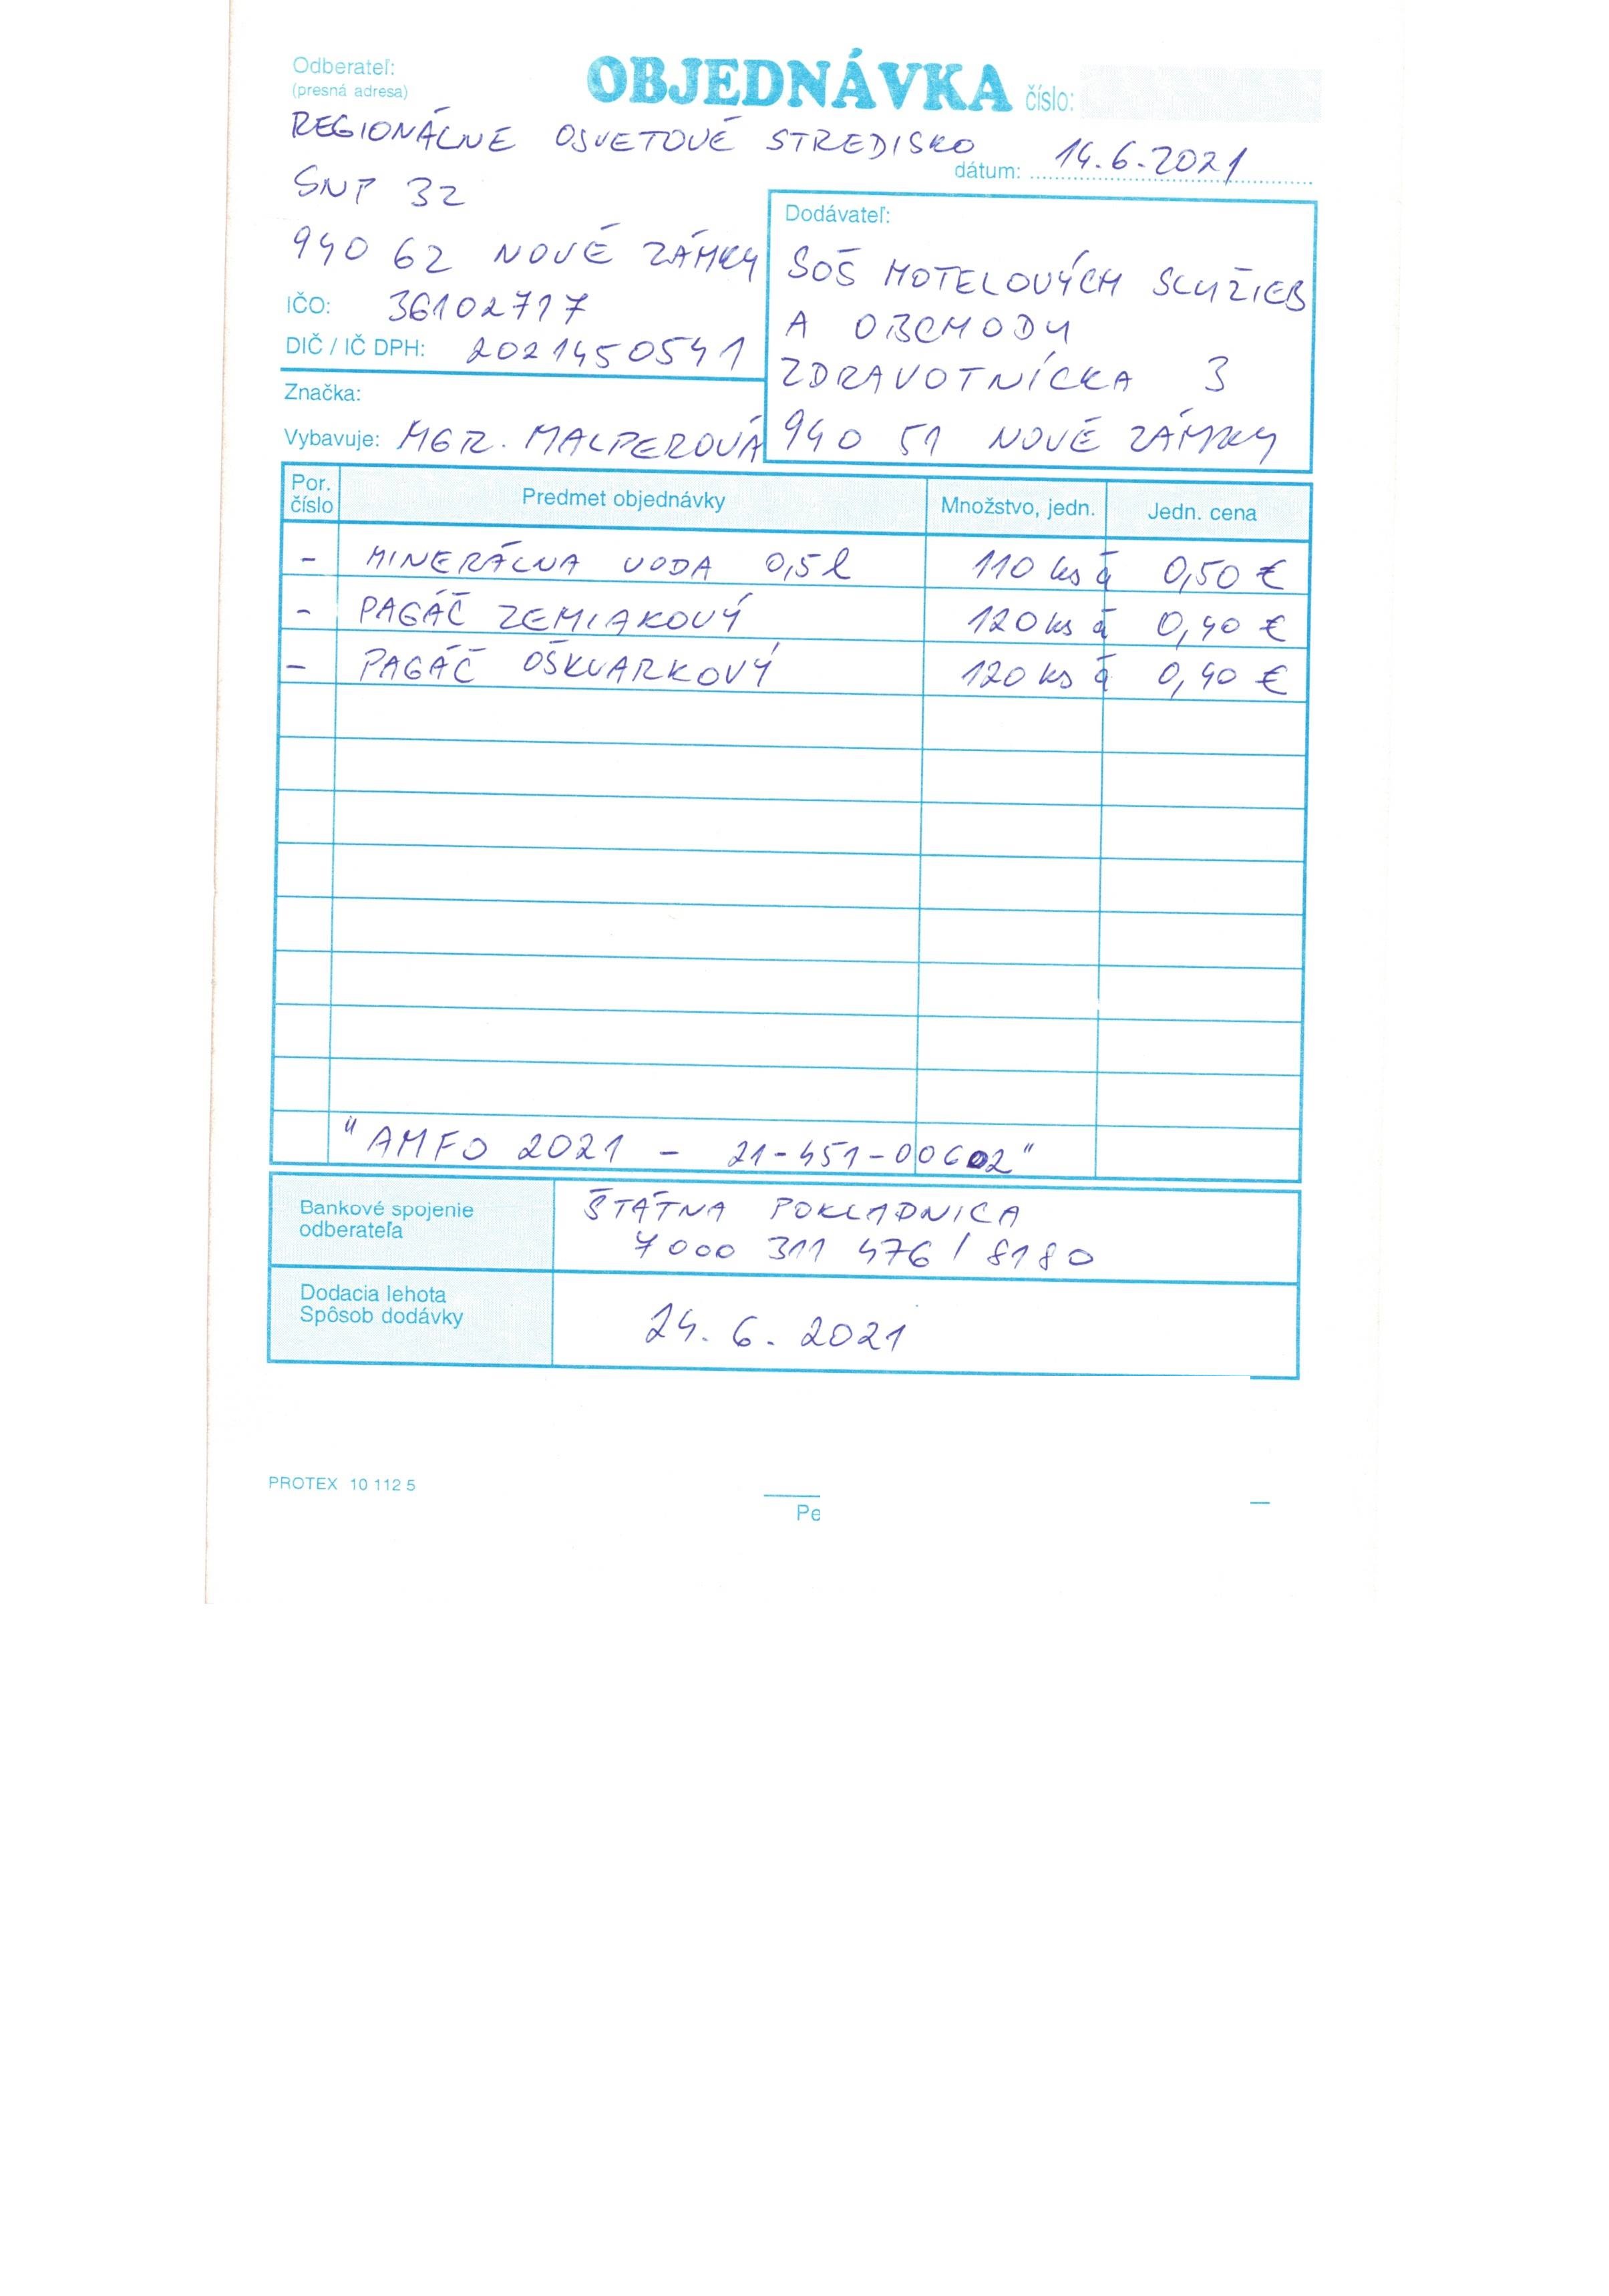 Odberateľ:
(presná adresa)
OBJEDNÁVKA číslo:
REGIONÁLNE OSVETOVÉ STREDISKO
dátum: 14.6.2021
SNP 32
940 62 NOVÉ ZÁMKY
IČO: 36102717
DIČ / IČ DPH: 2021450541
Značka:
Vybavuje: MGR. MALPEROVÁ
Dodávateľ:
SOŠ HOTELOVÝCH SLUŽIEB
A OBCHODU
ZDRAVOTNÍCKA 3
940 51 NOVÉ ZÁMKY
Por. číslo Predmet objednávky Množstvo, jedn. Jedn. cena
- MINERÁLNA VODA 0,5l 110 ks á 0,50 €
- PAGÁČ ZEMIAKOVÝ 120 ks á 0,40 €
- PAGÁČ OŠKVARKOVÝ 120 ks á 0,40 €
"AMFO 2021 - 21-451-00602"
Bankové spojenie
odberateľa
ŠTÁTNA POKLADNICA
7000 311 476 / 8180
Dodacia lehota
Spôsob dodávky
24. 6. 2021
PROTEX 10 112 5
Pe